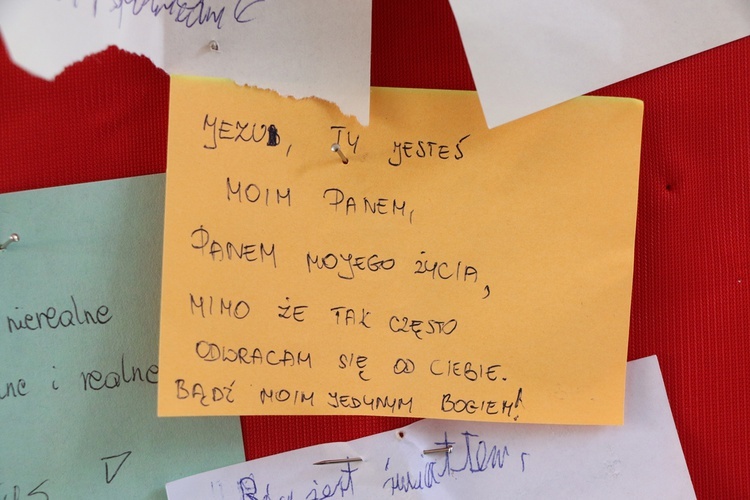 JEZUS, TY JESTEŚ
MOIM PANEM,
PANEM MOJEGO ŻYCIA,
MIMO ŻE TAK CZĘSTO
ODWRACAM SIĘ OD CIEBIE.
BĄDŹ MOIM JEDYNYM BOGIEM!
nierealne
i realne
jest światłem,